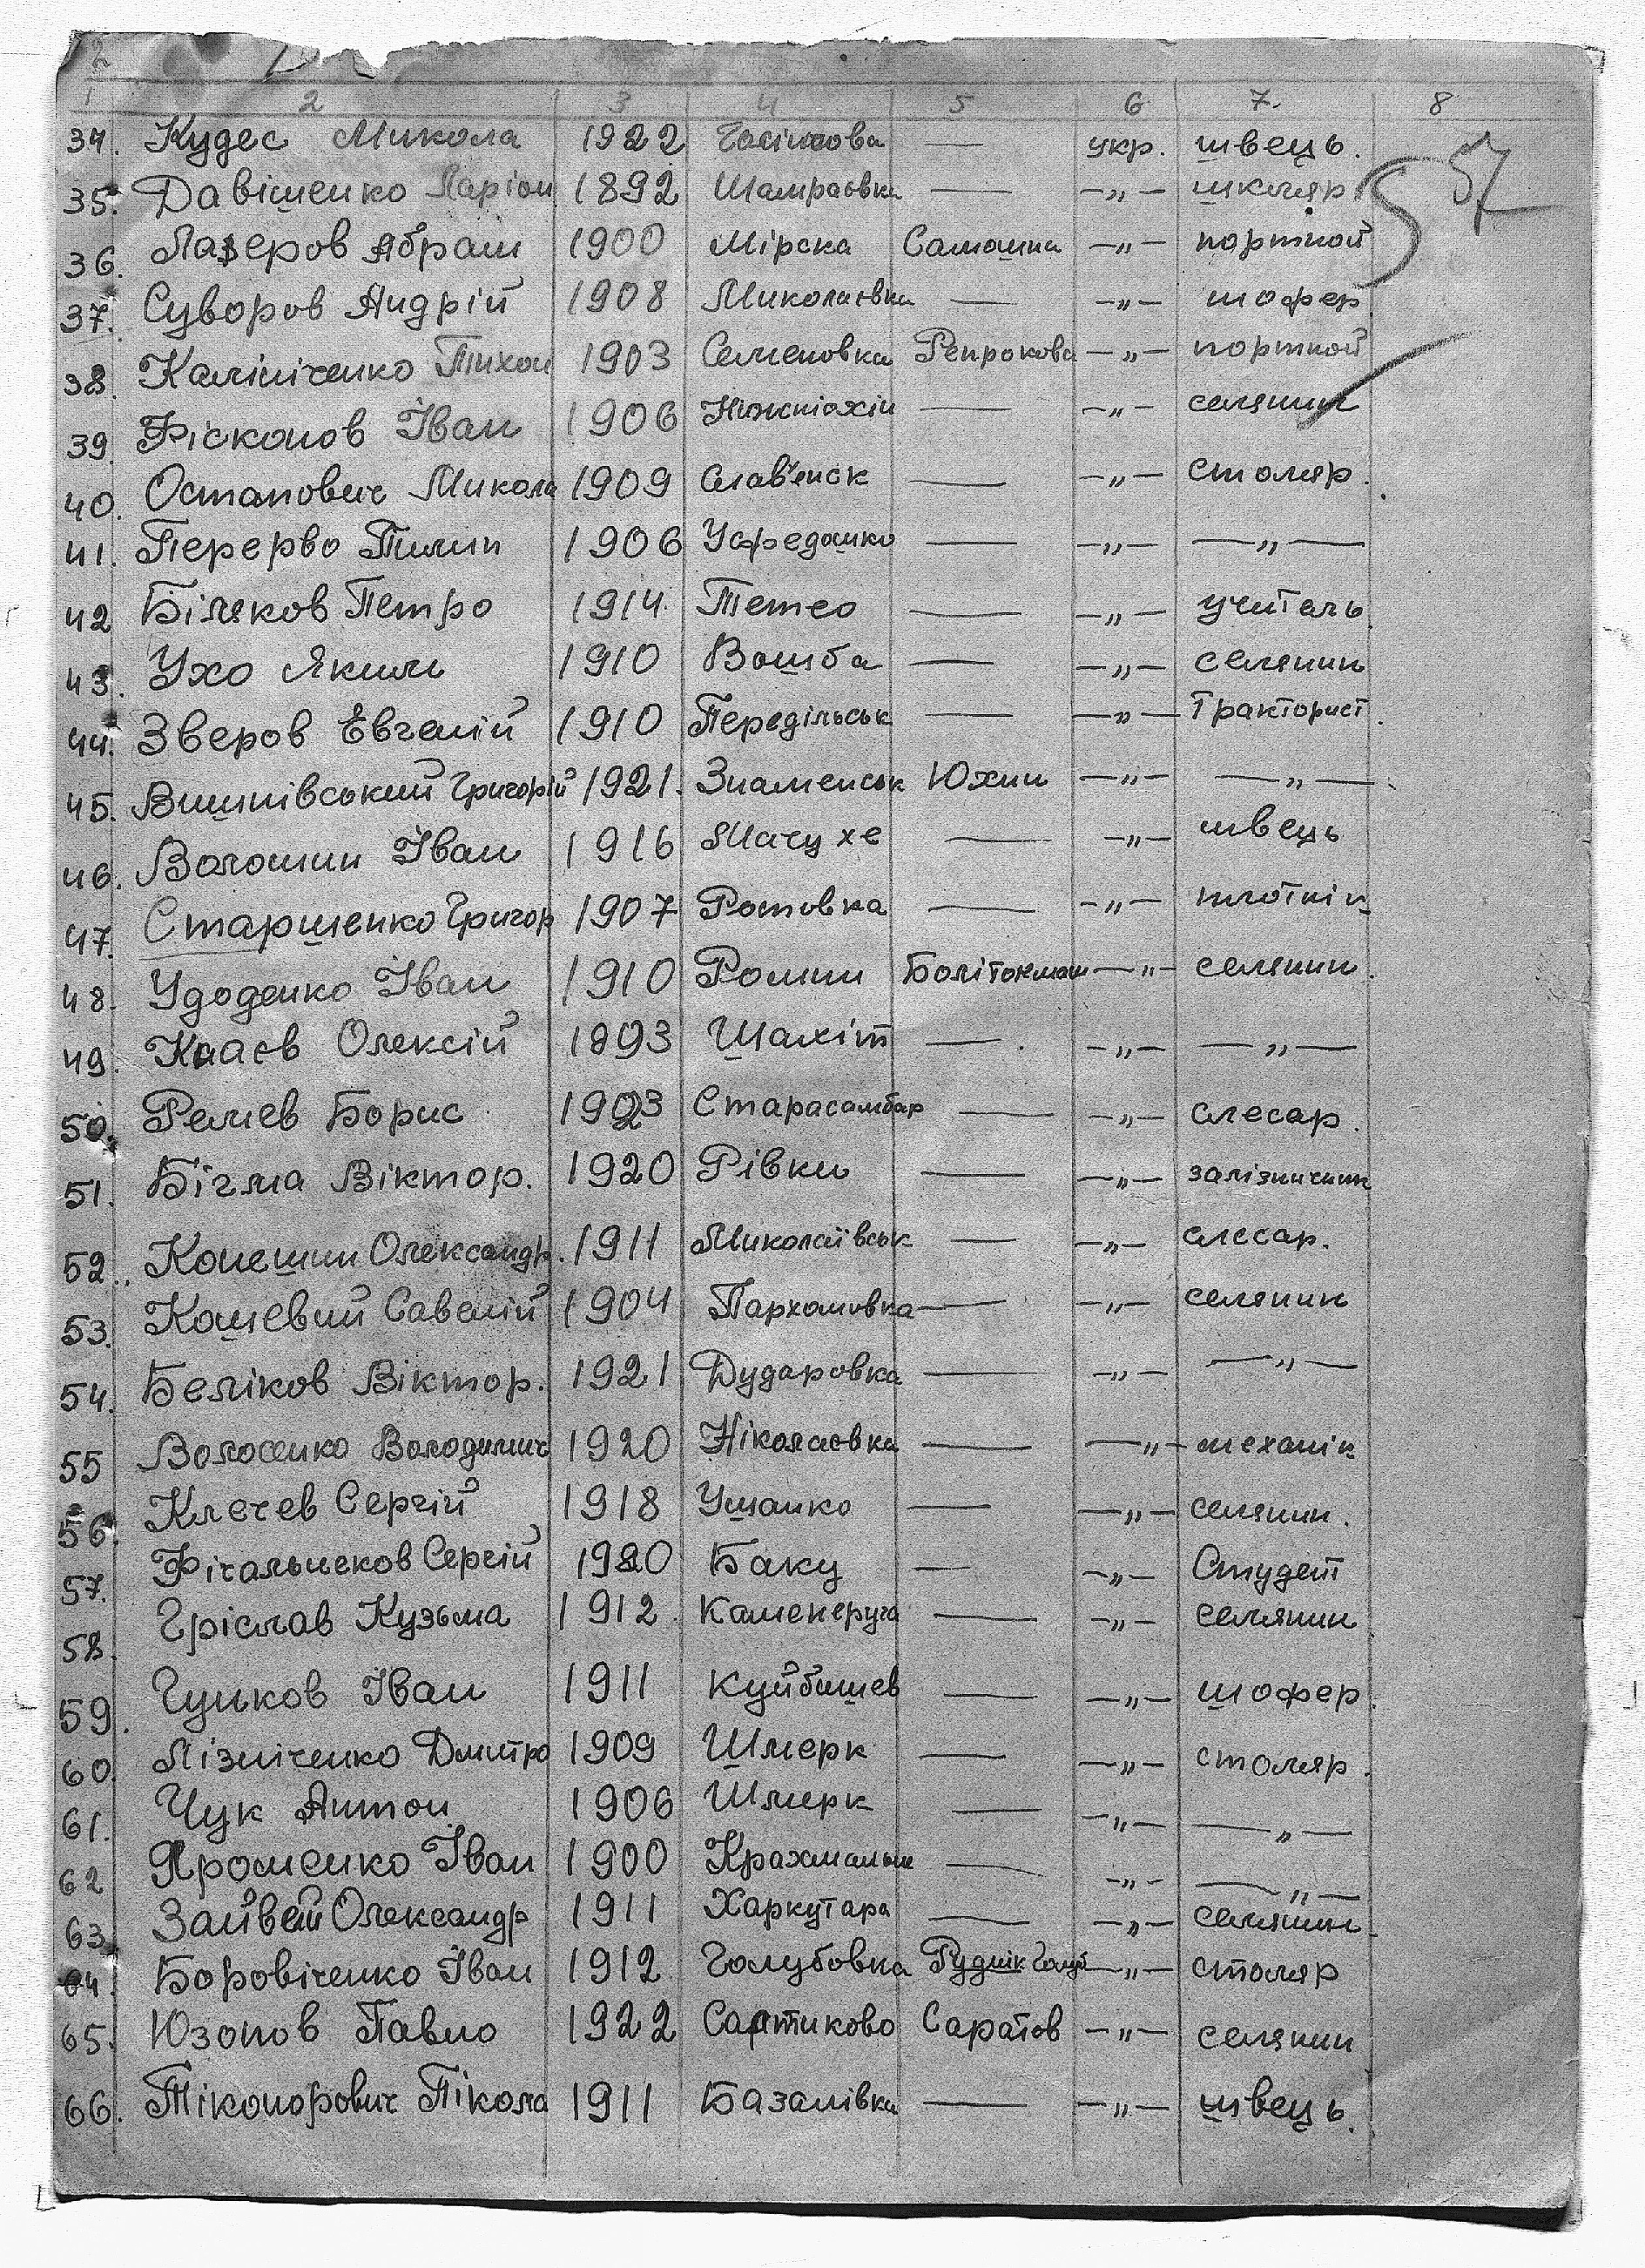 2
1 2 3 4 5 6 7. 8
57
34. Кудес Микола 1922 — укр. швець.
35. Давіщенко Ларіон 1892 Шамраовка — -„- школяр
36. Лазеров Абрам 1900 Мірска Самошина -„- портной
37. Суворов Андрій 1908 Миколаєвка — -„- шофер
38. Калініченко Тихон 1903 Семеновка Репрокова -„- портной
39. Фісконов Іван 1906 — -„- селянин
40. Остапович Микола 1909 Слав'єнск — -„- столяр.
41. Перерво Пилип 1906 — -„- —„—
42 Біляков Петро 1914. Тетео — -„- учитель.
43. Ухо Яким 1910 Вошба — -„- селянин
44. Зверов Евгеній 1910 Передільськ — -„- Тракторист.
45. Вишнівський Григорій 1921. Знаменськ Юхни -„- —„—
46. Волошин Іван 1916 Мачухе — -„- швець
47. Старшенко Григор 1907 Ротовка — -„- плотнік
48. Удоденко Іван 1910 Ромни Болітокмак -„- селянин.
49. Кааєв Олексій 1893 Шахіт — -„- —„—
50. Релієв Борис 1903 Старасамбар — -„- слесар.
51. Бігма Віктор. 1920 Рівки — -„- залізничник
52. Конешин Олександр. 1911 Миколаївськ — -„- слесар.
53. Кошевий Савелій 1904 Пархомовка — -„- селянин
54. Беліков Віктор. 1921 Дударовка — -„- —„—
55 Волосенко Володимир 1920 Ніколаєвка — -„- механік
56. Клєчев Сергій 1918 Ушанко — -„- селянин.
57. Фігальнеков Сергій 1920 Баку — -„- Студент
58. Гріслав Кузьма 1912. Каменеруга — -„- селянин
59. Гунков Іван 1911 Куйбишев — -„- шофер.
60. Лізніченко Дмитро 1909 Шмерк — -„- столяр.
61. Чук Антон 1906 Шмерк — -„- —„—
62 Яроменко Іван 1900 — -„- —„—
63. Зайвей Олександр 1911 Харкутара — -„- селянин
64. Боровіченко Іван 1912 Голубовка Руднік Голуб -„- столяр
65. Юзопов Павло 1922 Сартиково Саратов -„- селянин
66. Тіконорович Нікола 1911 Базалівка — -„- швець.